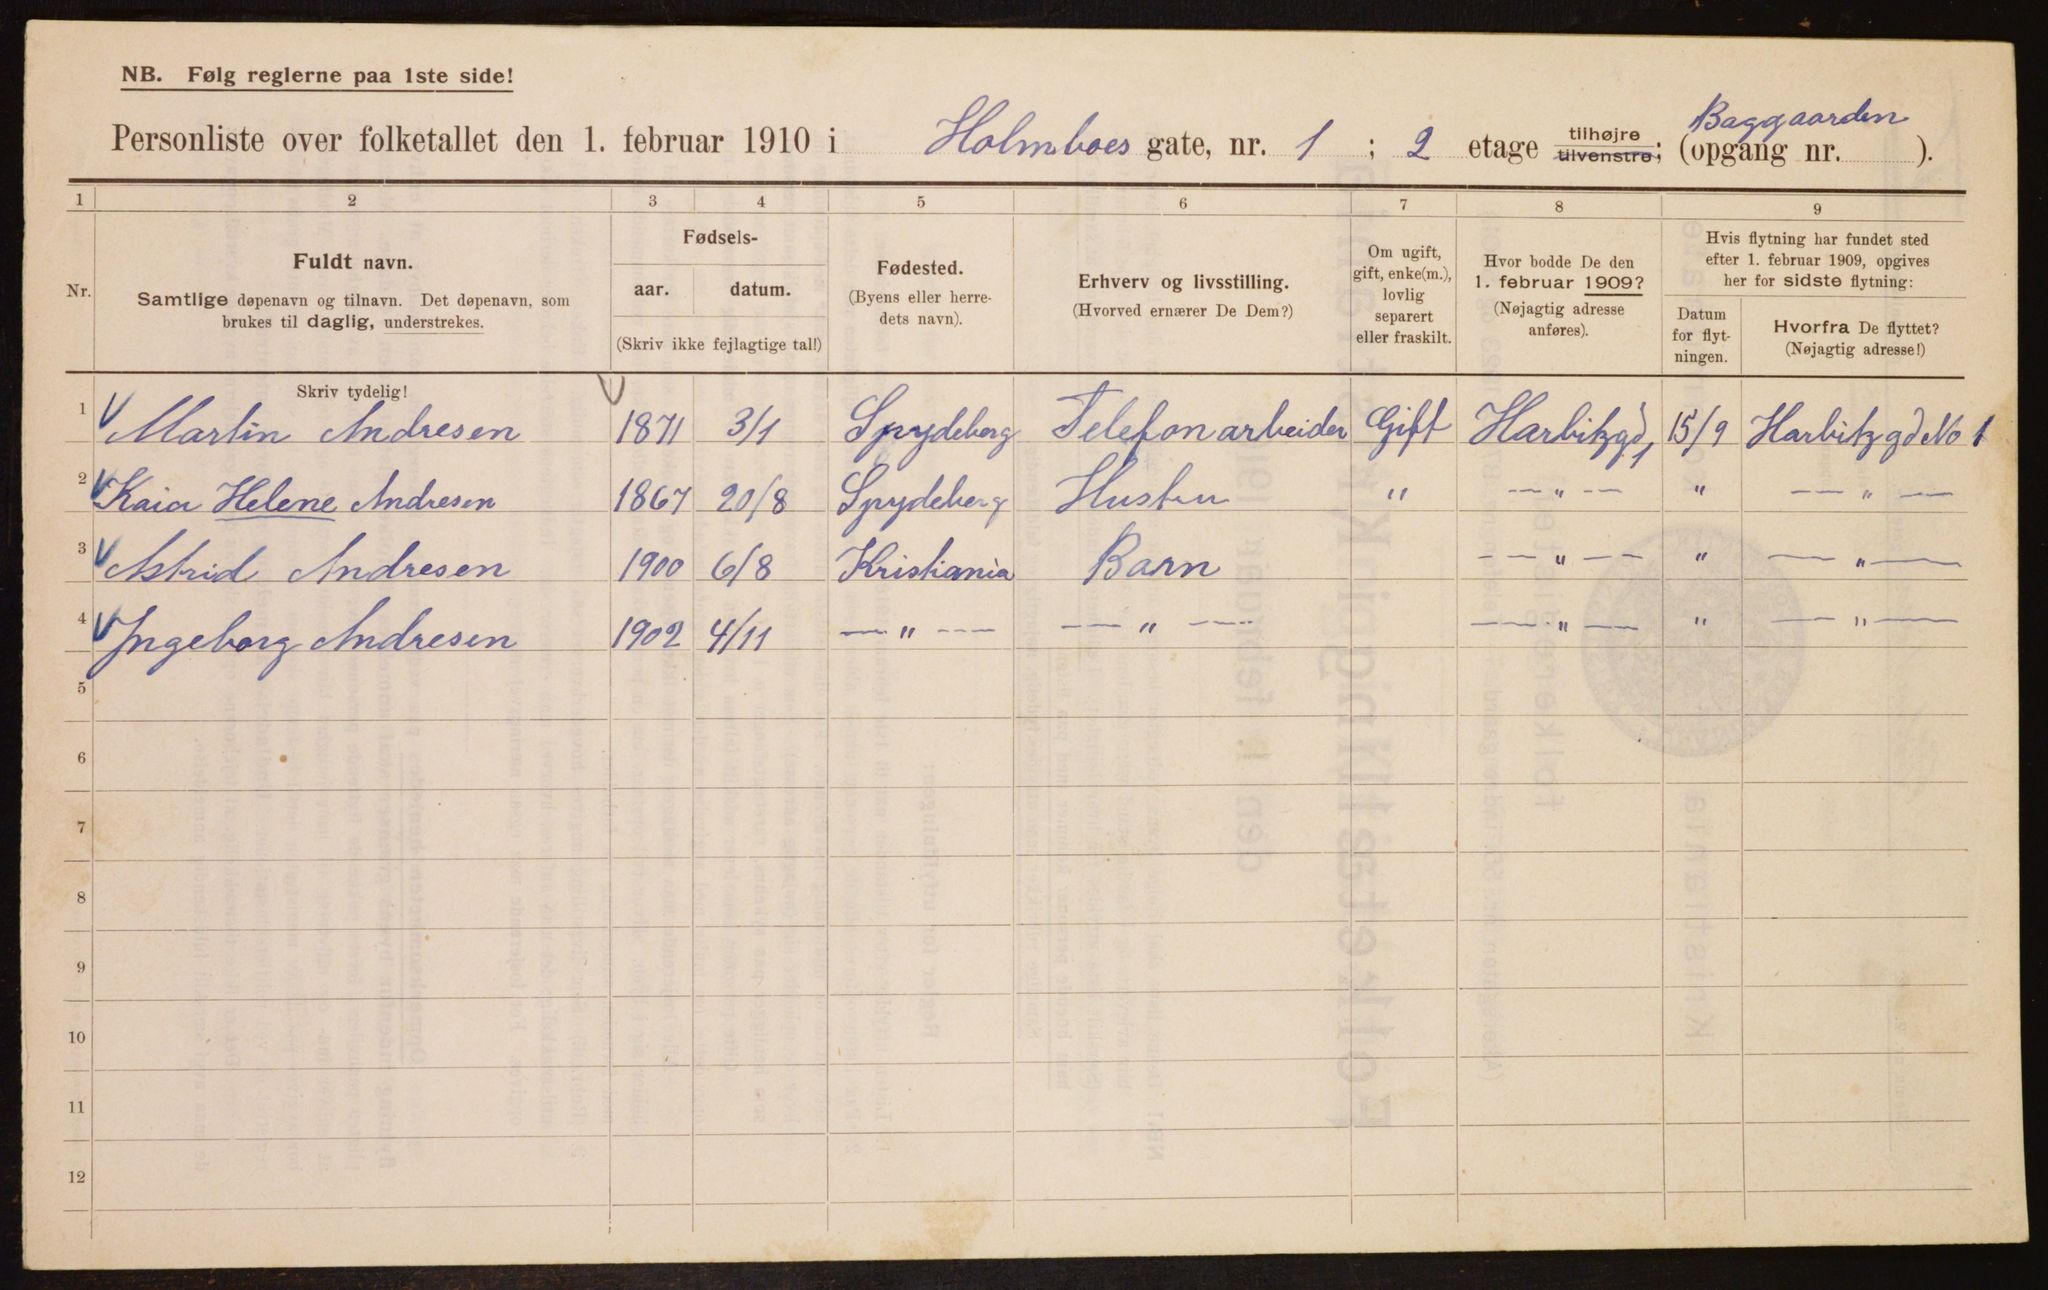 NB. Følg reglerne paa 1ste side!
Personliste over folketallet den 1. februar 1910 i Holmboes gate, nr. 1 ; 2 etage tilhøjre tilvenstre; (opgang nr. Baggaarden ).
1 2 3 4 5 6 7 8 9
Nr.
Fuldt navn.
Samtlige døpenavn og tilnavn. Det døpenavn, som
brukes til daglig, understrekes.
Fødsels-
aar. datum.
(Skriv ikke fejlagtige tal!)
Fødested.
(Byens eller herre-
dets navn).
Erhverv og livsstilling.
(Hvorved ernærer De Dem?)
Om ugift,
gift, enke(m.),
lovlig
separert
eller fraskilt.
Hvor bodde De den
1. februar 1909?
(Nøjagtig adresse
anføres).
Hvis flytning har fundet sted
efter 1. februar 1909, opgives
her for sidste flytning:
Datum
for flyt-
ningen.
Hvorfra De flyttet?
(Nøjagtig adresse!)
Skriv tydelig!
1 Martin Andresen 1871 3/1 Spydeberg Telefonarbeider Gift Harbitzgd 1 15/9 Harbitzgd No 1
2 Kaia Helene Andresen 1867 20/8 Spydeberg Hustru " — " — " — " —
3 Astrid Andresen 1900 6/8 Kristiania Barn — " — " — " —
4 Ingeborg Andresen 1902 4/11 — " — — " — — " — " — " —
5
6
7
8
9
10
11
12